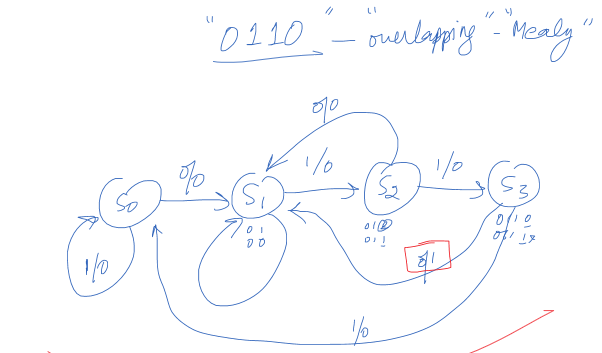 "0110" - "overlapping" - "Mealy"
0/0
0/0 1/0 1/0
S0 S1 S2 S3
0 1
0 0
0 1 0
0 1 1
0 1 1 0
1/0
0/1
1/0